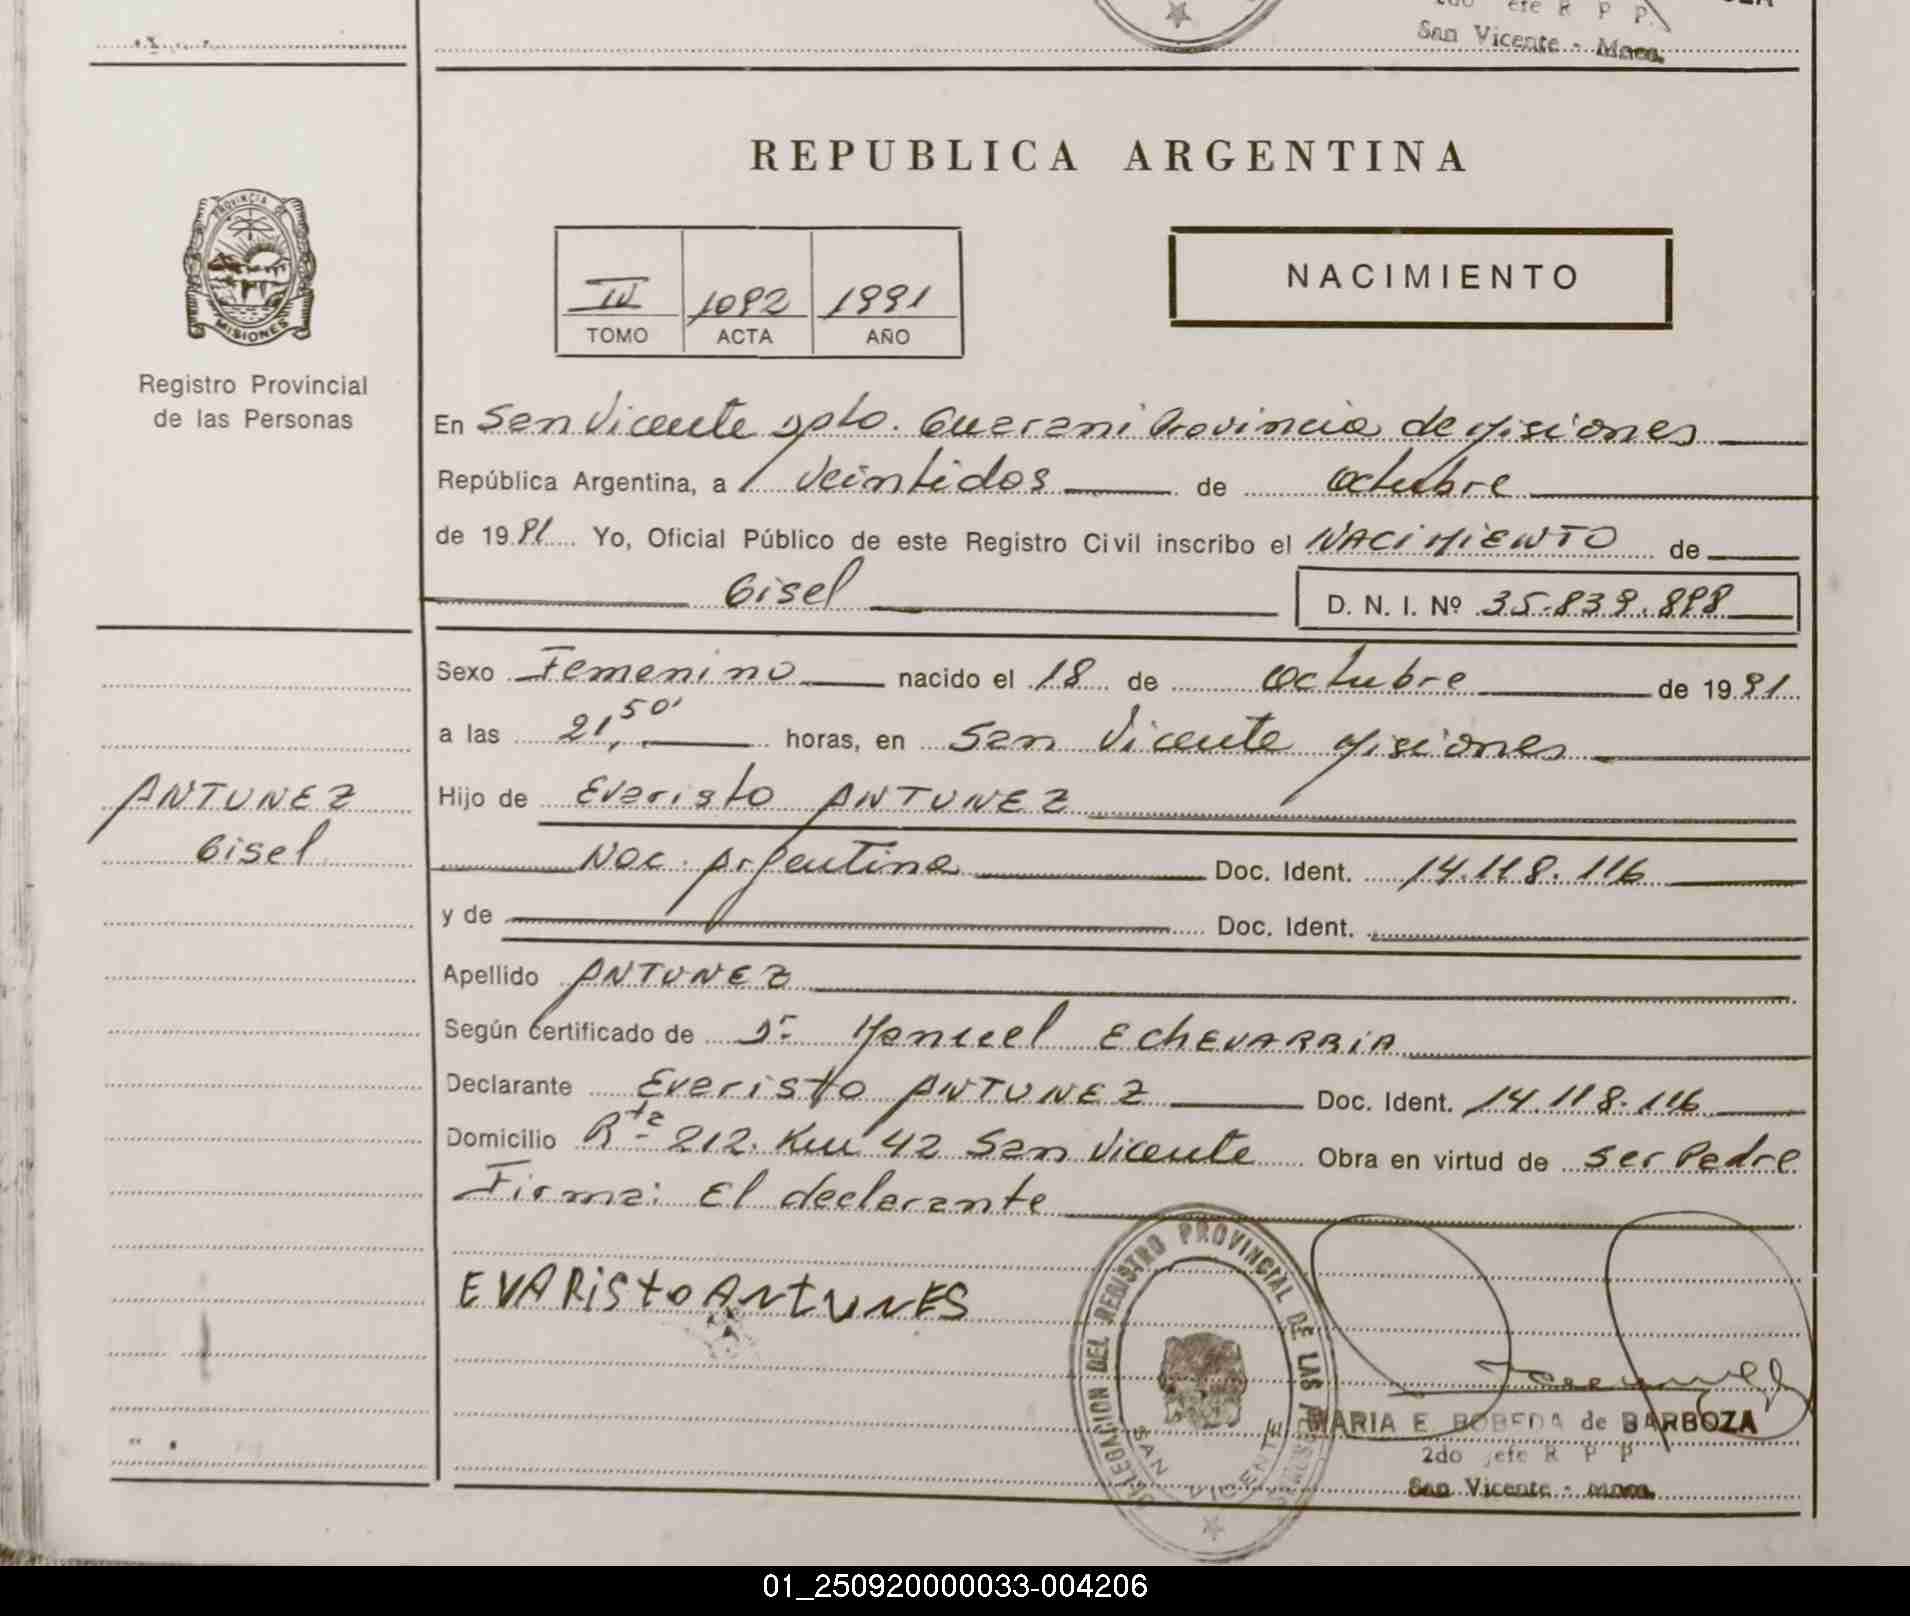 2do efe R P P.
San Vicente - Mnes.
REPUBLICA ARGENTINA
PROVINCIA DE
MISIONES
Registro Provincial
de las Personas
IV 1092 1991
TOMO ACTA AÑO
NACIMIENTO
En San Vicente Dpto. Guarani Provincia de Misiones
República Argentina, a veintidos de octubre
de 1991 Yo, Oficial Público de este Registro Civil inscribo el NACIMIENTO de
Gisel D. N. I. Nº 35.839.898
Sexo Femenino nacido el 18 de octubre de 1991
a las 21,50' horas, en San Vicente Misiones
ANTUNEZ
Gisel
Hijo de Evaristo ANTUNEZ
Nac. Argentina Doc. Ident. 14.118.116
y de Doc. Ident.
Apellido ANTUNEZ
Según certificado de Dr. Manuel EchEVARRIA
Declarante Evaristo ANTUNEZ Doc. Ident. 14.118.116
Domicilio Rta 212. Km 42 San Vicente Obra en virtud de ser Padre
Firma: El declarante
EVARISto ANtUNES
DELEGACION DEL REGISTRO PROVINCIAL DE LAS
SAN VICENTE
MARIA E BOBEDA de BARBOZA
2do Jefe R P P
San Vicente - Mnes.
01_250920000033-004206